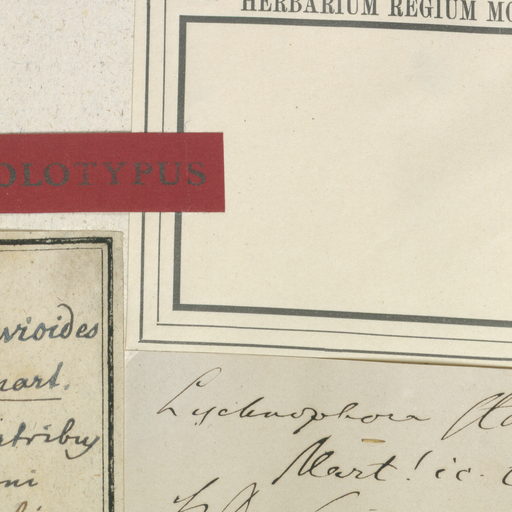 HERBARIUM REGIUM MO
OLOTYPUS
vioides
mart.
tribus
ni
Lychnophora
Mart! ic.